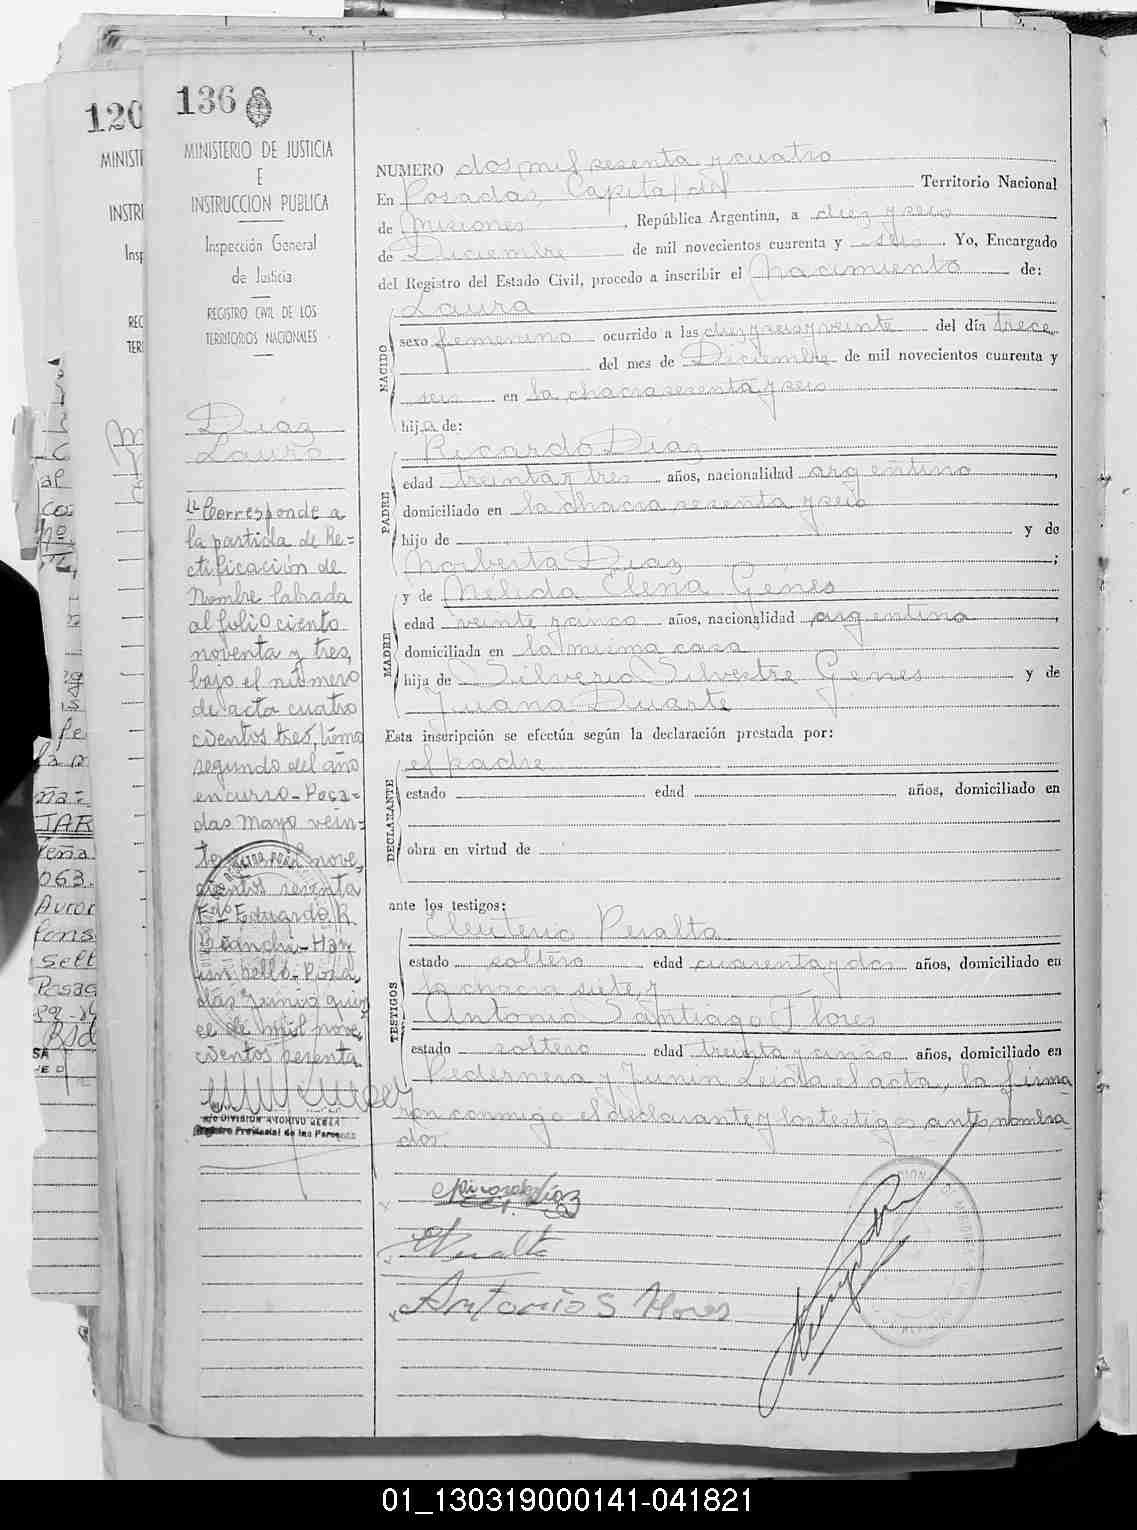 136
MINISTERIO DE JUSTICIA
E
INSTRUCCION PUBLICA
Inspección General
de Justicia
REGISTRO CIVIL DE LOS
TERRITORIOS NACIONALES
Diaz
Laura
Corresponde a
la partida de Re=
ctificación de
Nombre labrada
al folio ciento
noventa y tres,
bajo el número
de acta cuatro
cientos tres, tomo
segundo del año
en curso - Posa=
das Mayo vein-
te mil nove,
cientos sesenta
Fdo Eduardo R.
Bianchi - Hay
un sello - Posa,
das Junio quin
ce de mil nove,
cientos sesenta
A/C DIVISION ARCHIVO GENERAL
Registro Provincial de las Personas
NUMERO dos mil sesenta y cuatro
En Posadas, Capital del Territorio Nacional
de Misiones, República Argentina, a diez y seis
de Diciembre de mil novecientos cuarenta y seis. Yo, Encargado
del Registro del Estado Civil, procedo a inscribir el Nacimiento de:
NACIDO
Laura
sexo femenino ocurrido a las diez y seis y veinte del día trece
del mes de Diciembre de mil novecientos cuarenta y
seis en la chacra sesenta y seis
hija de:
PADRE
Ricardo Diaz
edad treinta y tres años, nacionalidad argentino,
domiciliado en la chacra sesenta y seis
hijo de y de
Norberta Diaz;
MADRE
y de Nélida Elena Génes
edad veinte y cinco años, nacionalidad argentina,
domiciliada en la misma casa
hija de Silverio Silvestre Genes y de
Juana Duarte
Esta inscripción se efectúa según la declaración prestada por:
DECLARANTE
el padre
estado edad años, domiciliado en
obra en virtud de
ante los testigos:
TESTIGOS
Eleuterio Peralta
estado soltero edad cuarenta y dos años, domiciliado en
la chacra siete y
Antonio Santiago Flores
estado soltero edad treinta y cinco años, domiciliado en
Pedernera y Junin. Leida el acta, la firma
ron conmigo el declarante y los testigos antes nombra-
dos.
Ricardo Diaz
E Peralta
Antonio S Flores
120
01_130319000141-041821